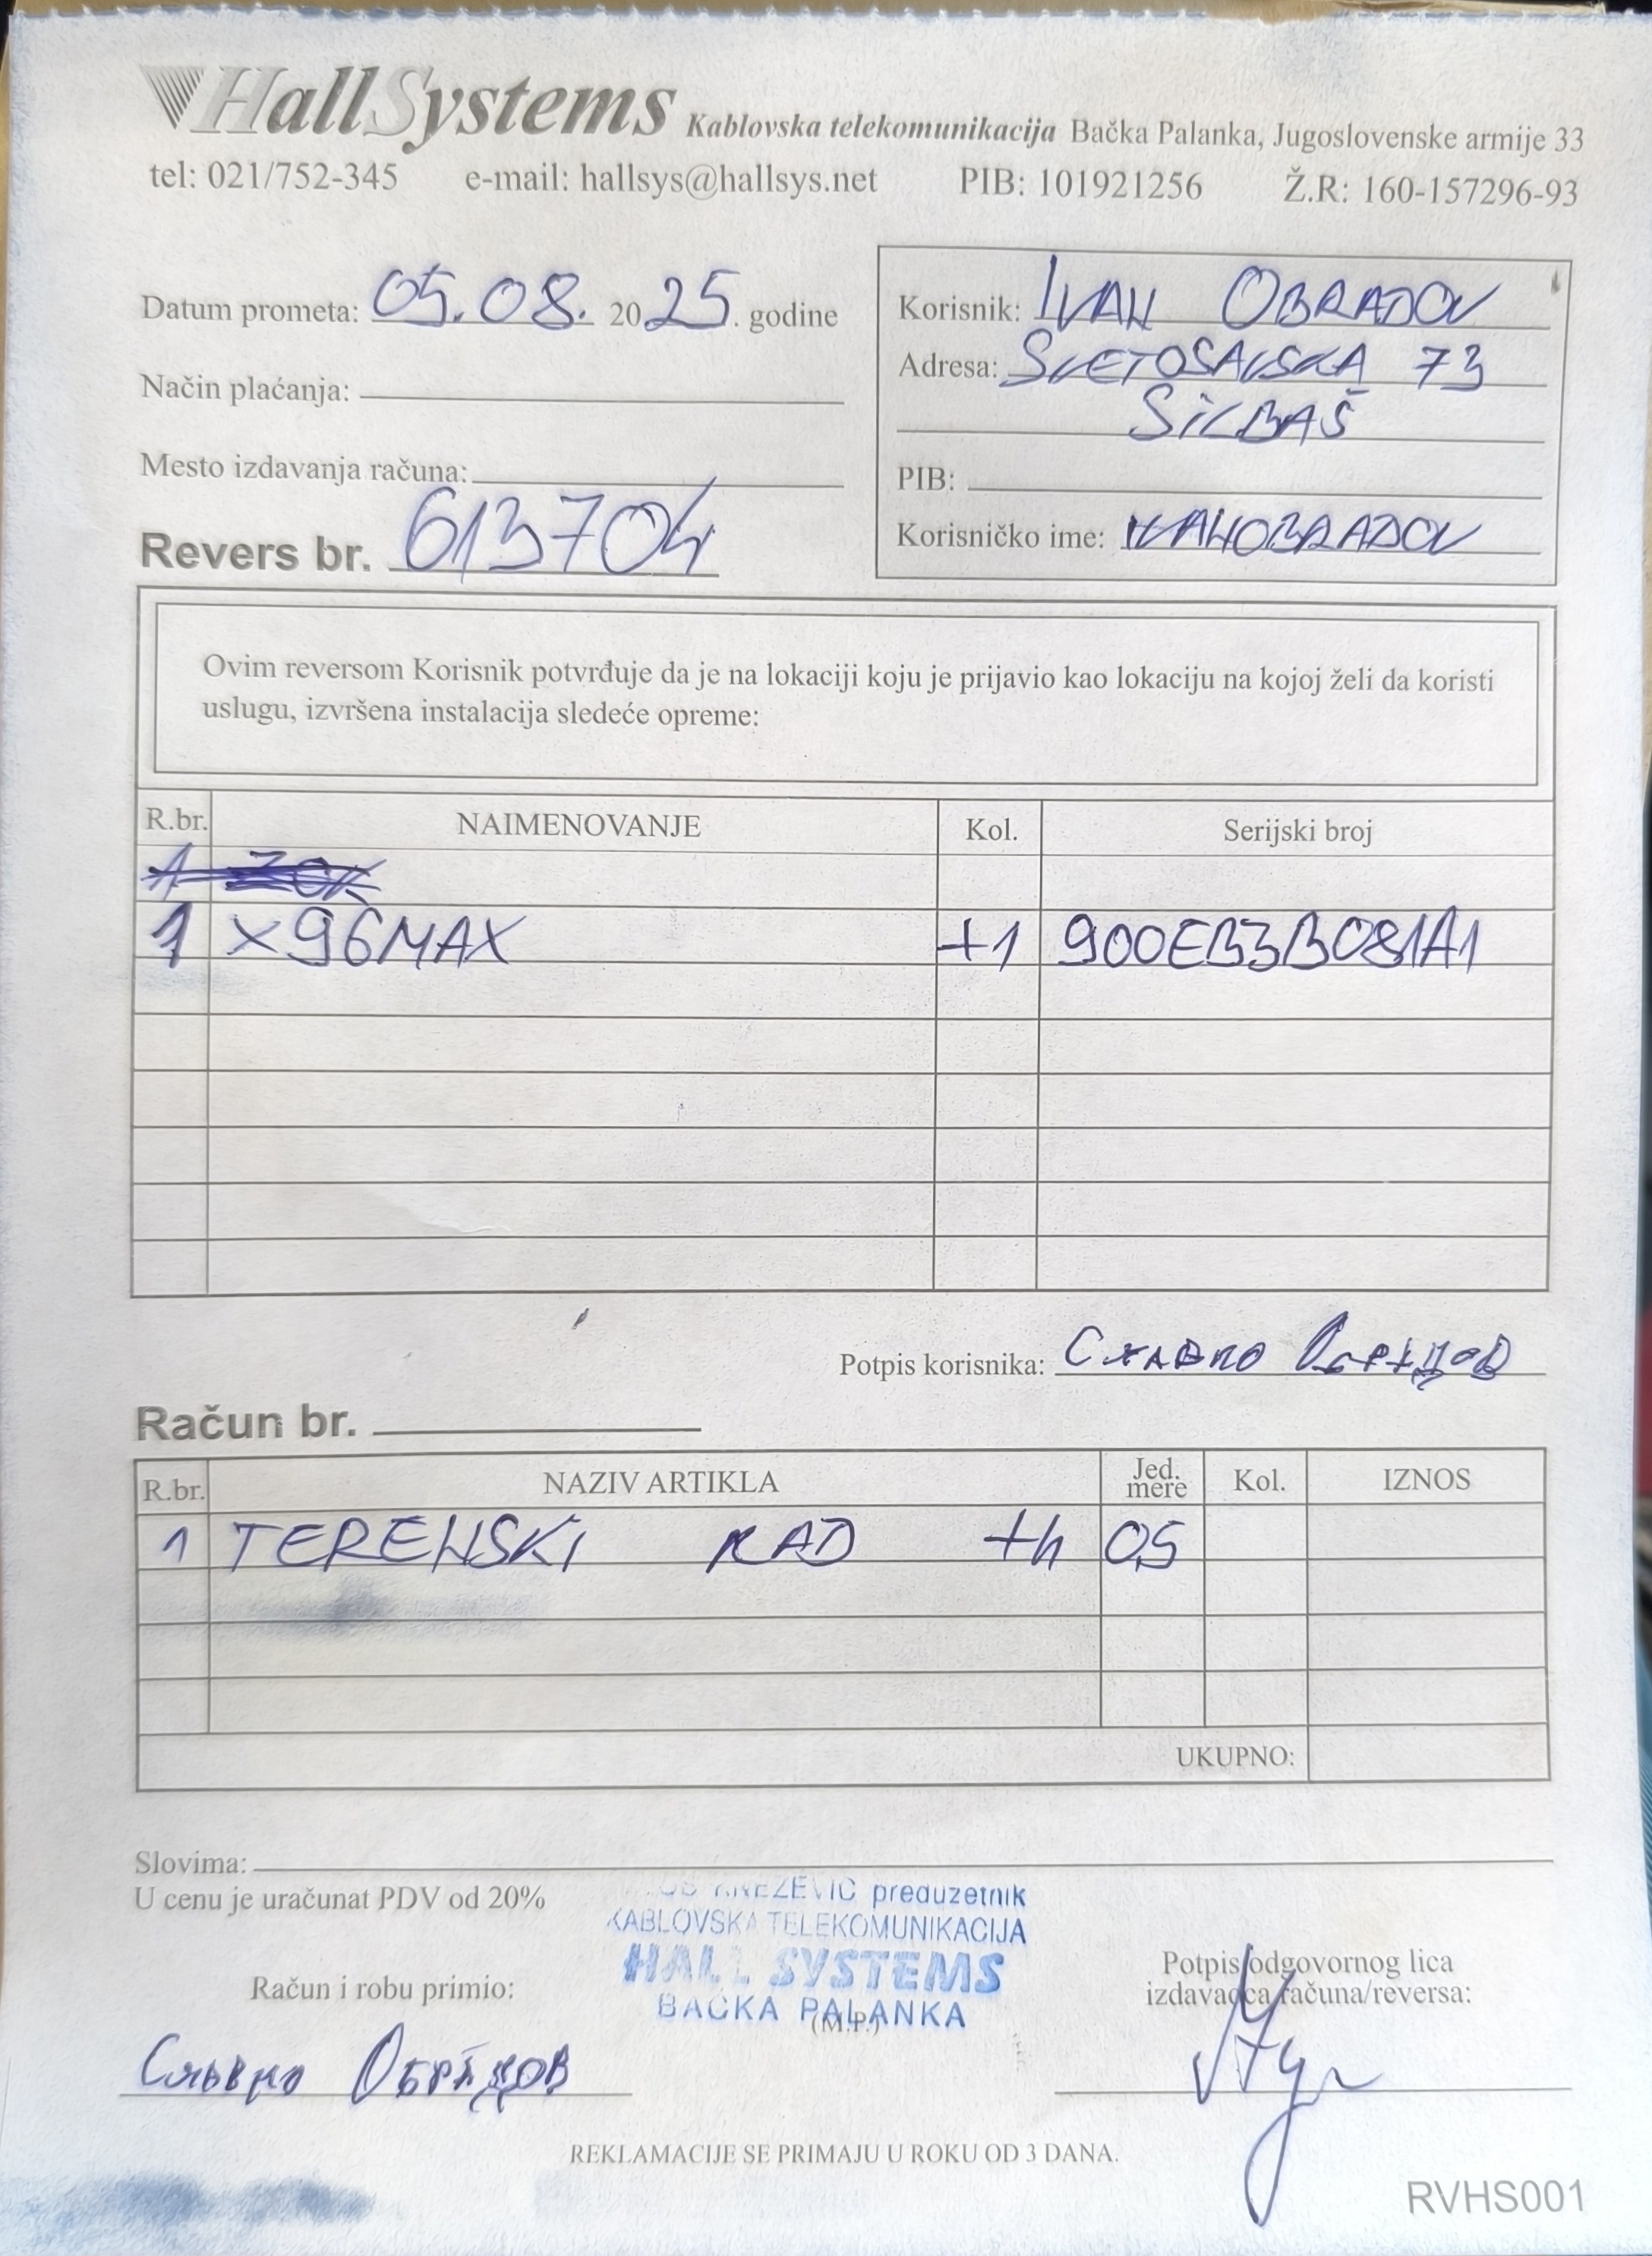 HallSystems Kablovska telekomunikacija Bačka Palanka, Jugoslovenske armije 33
tel: 021/752-345 e-mail: hallsys@hallsys.net PIB: 101921256 Ž.R: 160-157296-93
Datum prometa: 05.08. 2025. godine
Način plaćanja:
Mesto izdavanja računa:
Revers br. 613704
Korisnik: IVAN OBRADOV
Adresa: SVETOSAVSKA 73
SILBAŠ
PIB:
Korisničko ime: IVANOBRADOV
Ovim reversom Korisnik potvrđuje da je na lokaciji koju je prijavio kao lokaciju na kojoj želi da koristi
uslugu, izvršena instalacija sledeće opreme:
R.br. NAIMENOVANJE Kol. Serijski broj
1 X96MAX +1 900EB3B081A1
Potpis korisnika: Славко Обрадов
Račun br.
R.br. NAZIV ARTIKLA Jed. mere Kol. IZNOS
1 TERENSKI RAD +h 0,5
UKUPNO:
Slovima:
U cenu je uračunat PDV od 20%
KNEŽEVIĆ preduzetnik
KABLOVSKA TELEKOMUNIKACIJA
HALL SYSTEMS
BAČKA PALANKA
(M.P.)
Račun i robu primio:
Славко Обрадов
Potpis odgovornog lica
izdavaoca računa/reversa:
REKLAMACIJE SE PRIMAJU U ROKU OD 3 DANA.
RVHS001